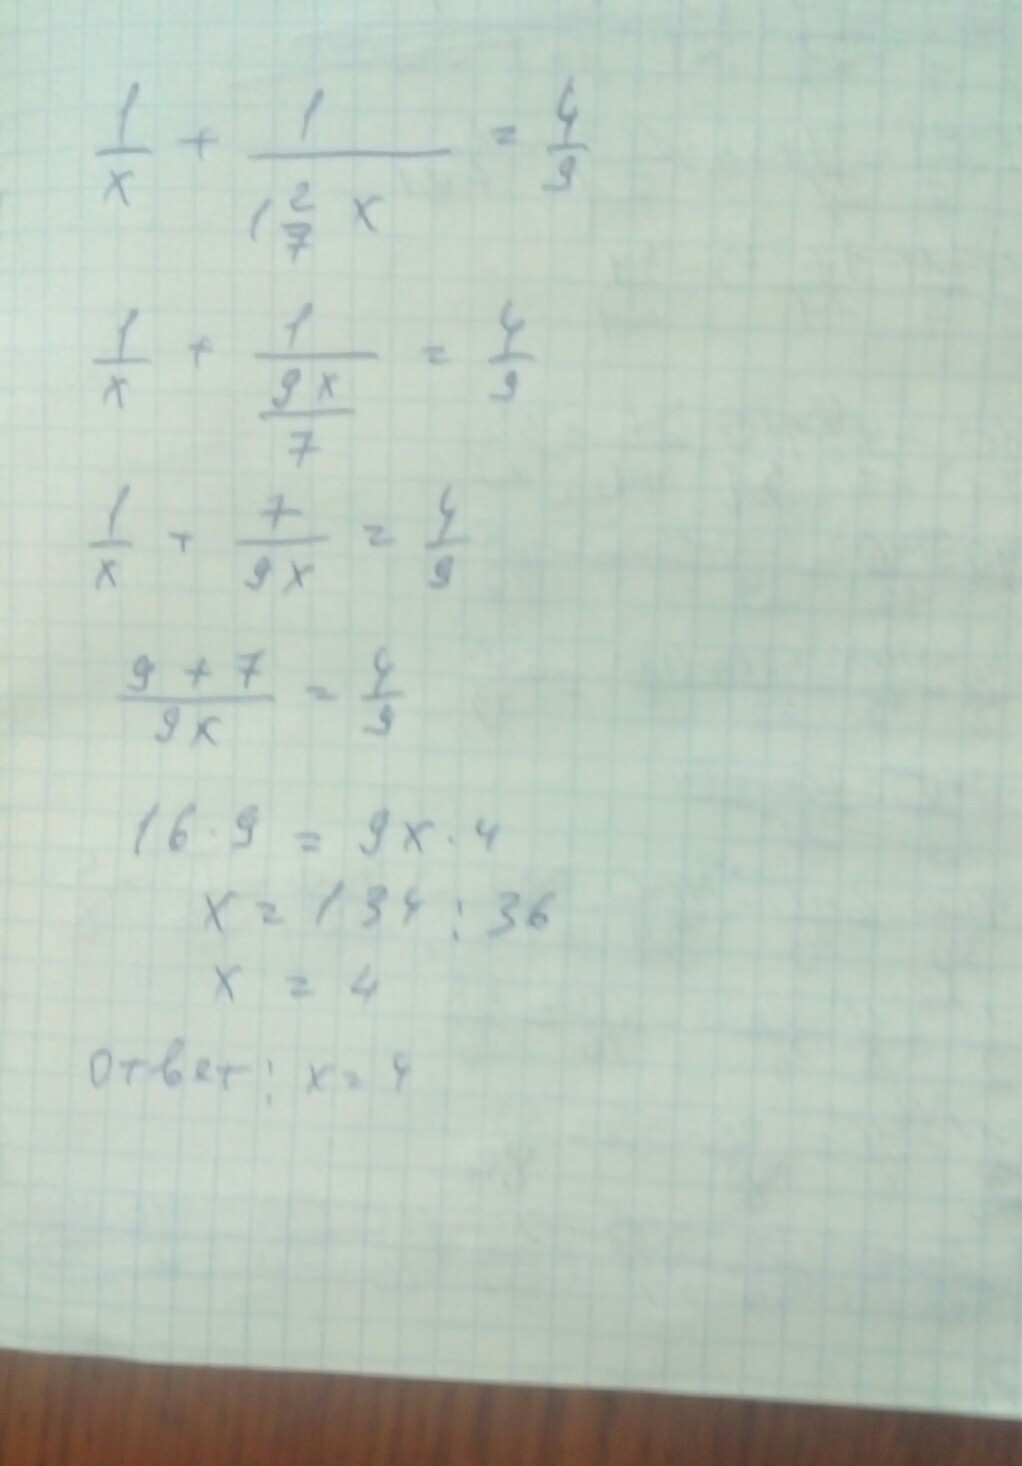 1/x + 1/(1 2/7 x) = 4/9
1/x + 1/(9x/7) = 4/9
1/x + 7/(9x) = 4/9
(9 + 7)/(9x) = 4/9
16 · 9 = 9x · 4
x = 134 : 36
x = 4
Ответ: x = 4